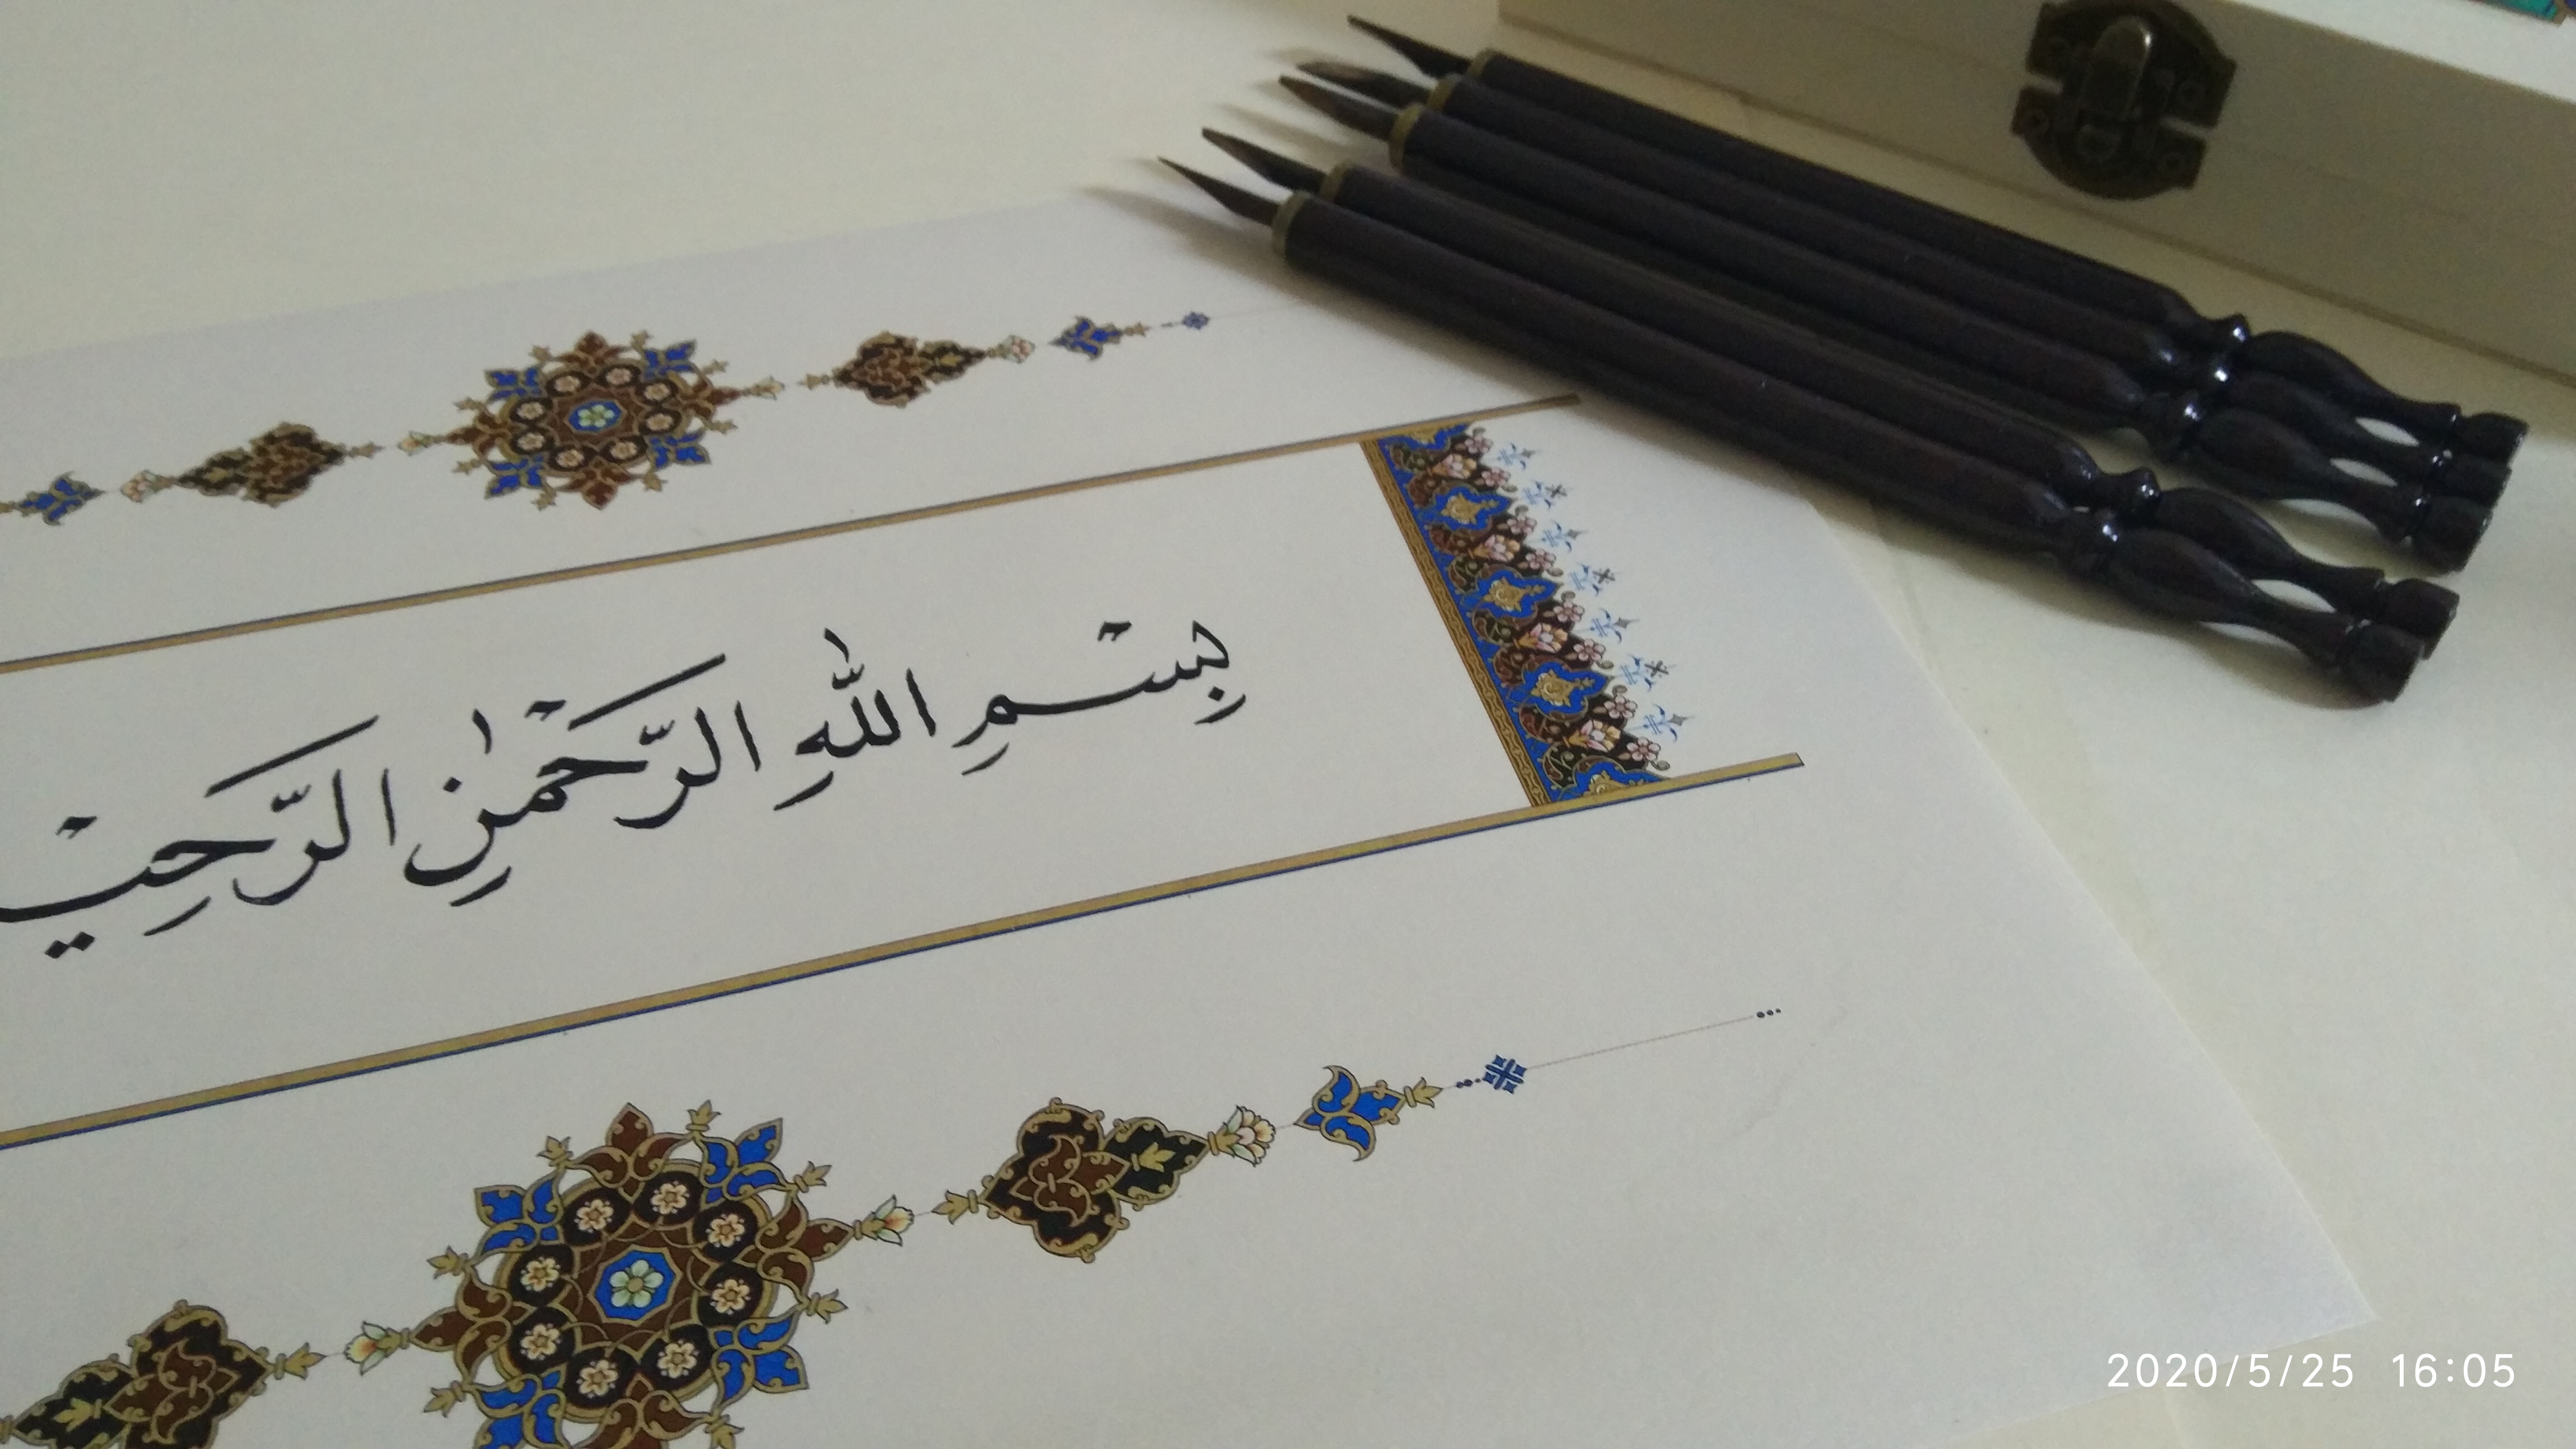 بِسْمِ اللّٰهِ الرَّحْمٰنِ الرَّحِي
2020/5/25 16:05